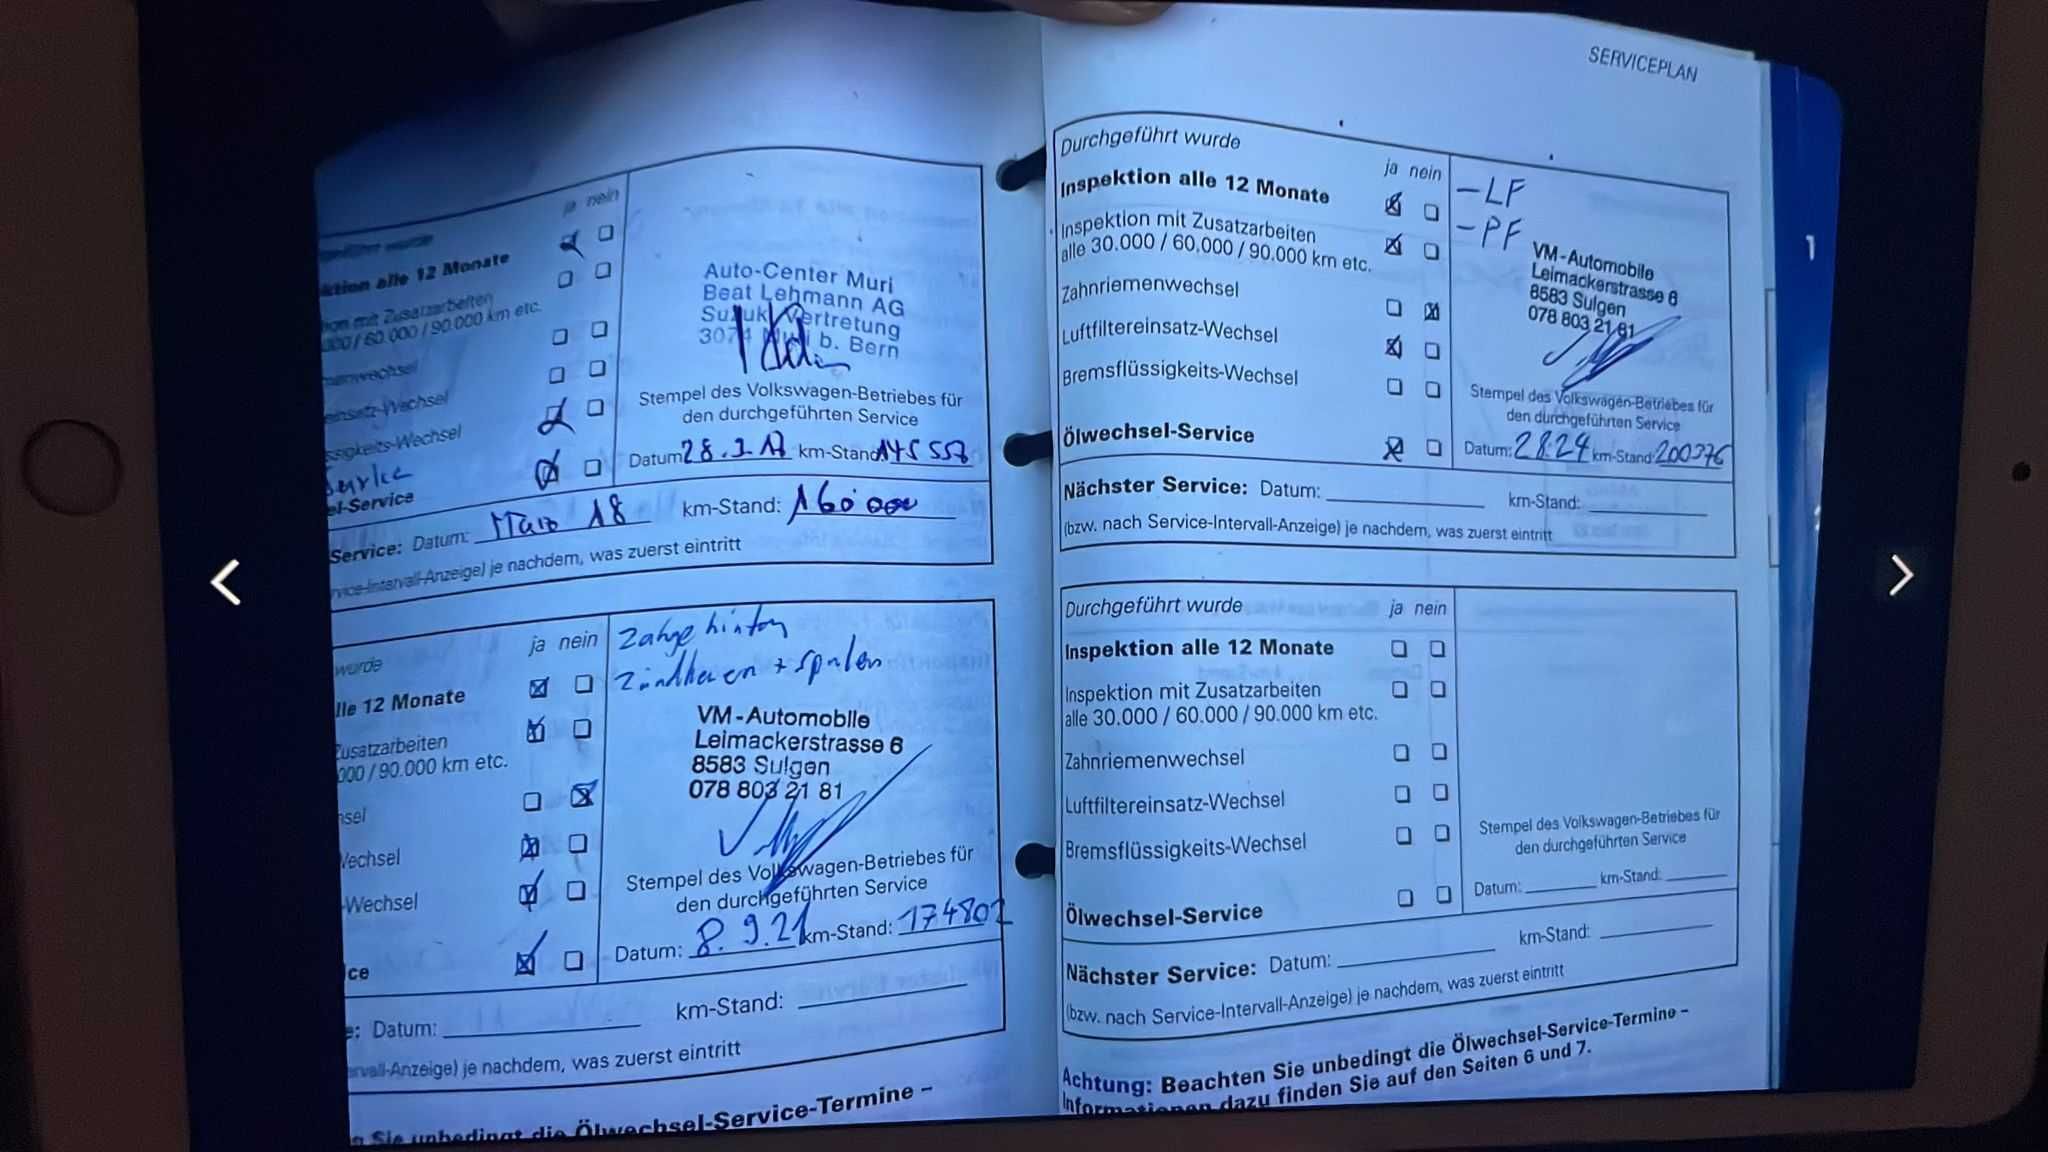 ja nein
ktion alle 12 Monate
ion mit Zusatzarbeiten
000 / 60.000 / 90.000 km etc.
enwechsel
einsatz-Wechsel
ssigkeits-Wechsel
el-Service
Auto-Center Muri
Beat Lehmann AG
Suzuki Vertretung
3074 Muri b. Bern
Stempel des Volkswagen-Betriebes für
den durchgeführten Service
Datum km-Stand 145 557
Service: Datum: 18 km-Stand: 160'000
rvice-Intervall-Anzeige) je nachdem, was zuerst eintritt
wurde ja nein
lle 12 Monate
Zusatzarbeiten
000 / 90.000 km etc.
hsel
Wechsel
-Wechsel
ice
VM-Automobile
Leimackerstrasse 6
8583 Sulgen
078 803 21 81
Stempel des Volkswagen-Betriebes für
den durchgeführten Service
Datum: 8.9.21 km-Stand: 174802
e: Datum: km-Stand:
ervall-Anzeige) je nachdem, was zuerst eintritt
n Sie unbedingt die Ölwechsel-Service-Termine –
SERVICEPLAN
1
Durchgeführt wurde ja nein
Inspektion alle 12 Monate
Inspektion mit Zusatzarbeiten
alle 30.000 / 60.000 / 90.000 km etc.
Zahnriemenwechsel
Luftfiltereinsatz-Wechsel
Bremsflüssigkeits-Wechsel
Ölwechsel-Service
- LF
- PF
VM-Automobile
Leimackerstrasse 6
8583 Sulgen
078 803 21 81
Stempel des Volkswagen-Betriebes für
den durchgeführten Service
Datum: 2.8.24 km-Stand: 200376
Nächster Service: Datum: km-Stand:
(bzw. nach Service-Intervall-Anzeige) je nachdem, was zuerst eintritt
Durchgeführt wurde ja nein
Inspektion alle 12 Monate
Inspektion mit Zusatzarbeiten
alle 30.000 / 60.000 / 90.000 km etc.
Zahnriemenwechsel
Luftfiltereinsatz-Wechsel
Bremsflüssigkeits-Wechsel
Ölwechsel-Service
Stempel des Volkswagen-Betriebes für
den durchgeführten Service
Datum: km-Stand:
Nächster Service: Datum: km-Stand:
(bzw. nach Service-Intervall-Anzeige) je nachdem, was zuerst eintritt
Achtung: Beachten Sie unbedingt die Ölwechsel-Service-Termine –
Informationen dazu finden Sie auf den Seiten 6 und 7.